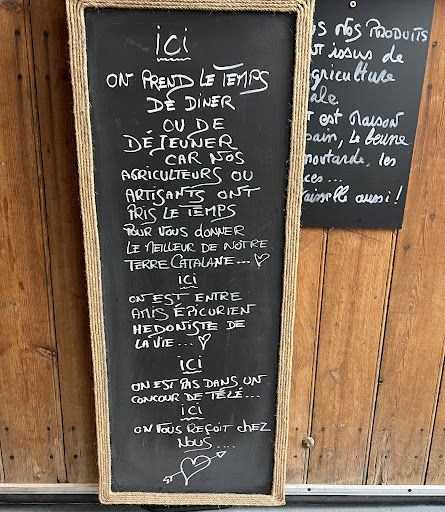 ici
ON PREND LE TEMPS
DE DINER
OU DE
DÉJEUNER
CAR NOS
AGRICULTEURS OU
ARTISANTS ONT
PRIS LE TEMPS
POUR VOUS DONNER
LE MEILLEUR DE NOTRE
TERRE CATALANE...
ici
ON EST ENTRE
AMIS ÉPICURIEN
HEDONISTE DE
LA VIE...
ici
ON EST PAS DANS UN
CONCOUR DE TÉLÉ...
ici
ON VOUS REÇOIT CHEZ
NOUS....
NOS PRODUITS
issus de
griculture
ale
est MAISON
pain, le beurre
moutarde, les
ces...
aisselle aussi !